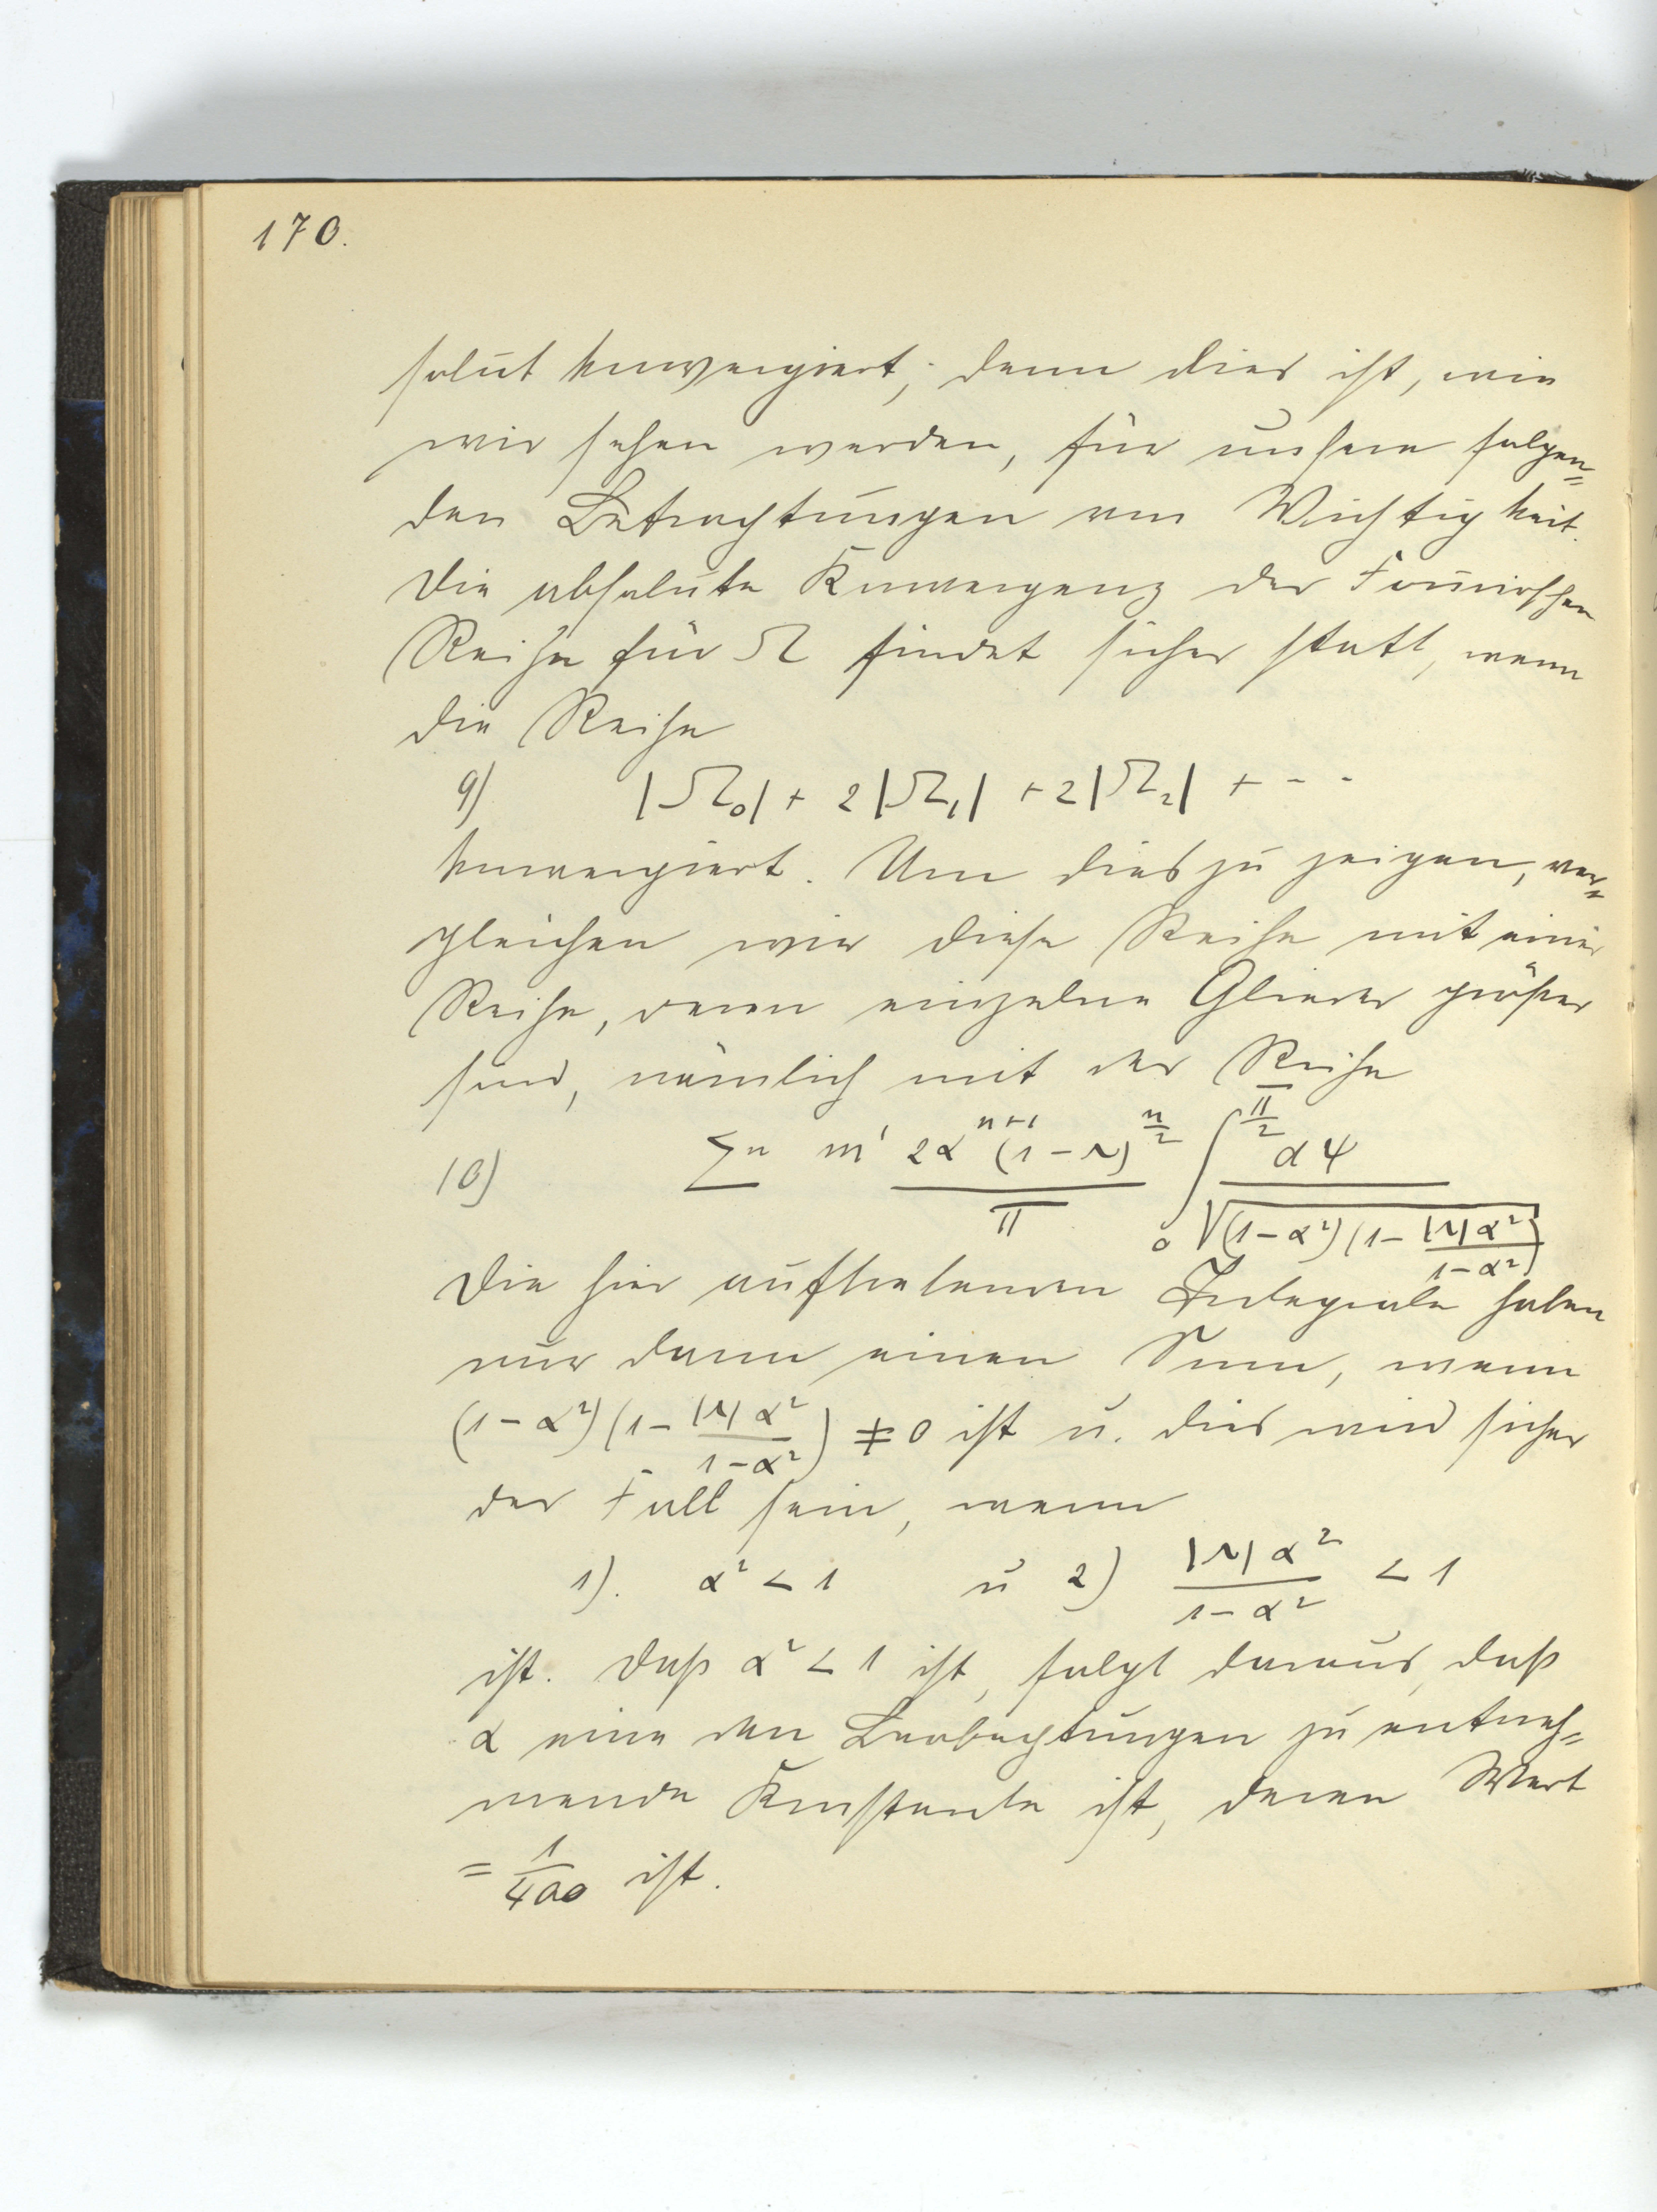 170.
solut konvergiert; denn dies ist, wie
wir sehen werden, für unsere folgen=
den Betrachtungen von Wichtigkeit.
Die absolute Konvergenz der Fourierschen
Reihe für Ω findet sicher statt, wenn
die Reihe
9) |Ω₀| + 2|Ω₁| + 2|Ω₂| + - -
konvergiert. Um dies zu zeigen, ver=
gleichen wir diese Reihe mit einer
Reihe, deren einzelne Glieder größer
sind, nämlich mit der Reihe
10) Σⁿ m' 2α^{n+1}(1-ν)^{n/2} / π ∫₀^{π/2} dψ / √((1-α²)(1 - |ν|α²/(1-α²)))
Die hier auftretenden Integrale haben
nur dann einen Sinn, wenn
(1-α²)(1 - |ν|α²/(1-α²)) ≠ 0 ist u. dies wird sicher
der Fall sein, wenn
1). α² < 1 u 2) |ν|α²/(1-α²) < 1
ist. Daß α² < 1 ist, folgt daraus, daß
α eine den Beobachtungen zu entneh=
mende Konstante ist, deren Wert
= 1/400 ist.